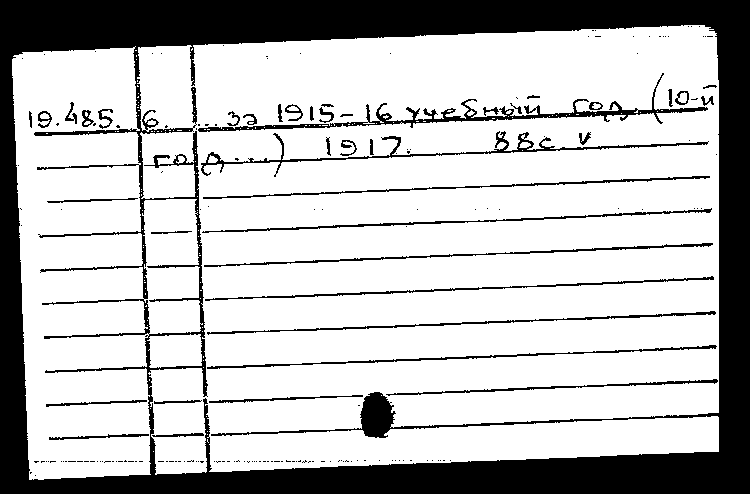 19.485. 6. ...за 1915-16 учебный год. (10-й
год...) 1917. 88с. v